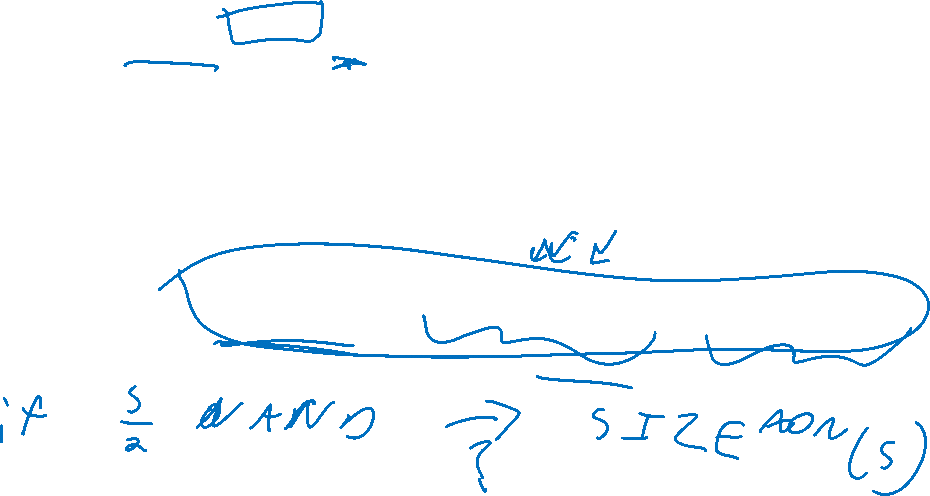 if s/2 NAND → SIZE AON(s)
?